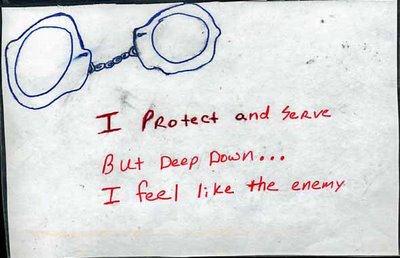 I PRotect and SeRve
But Deep Down...
I feel like the enemy